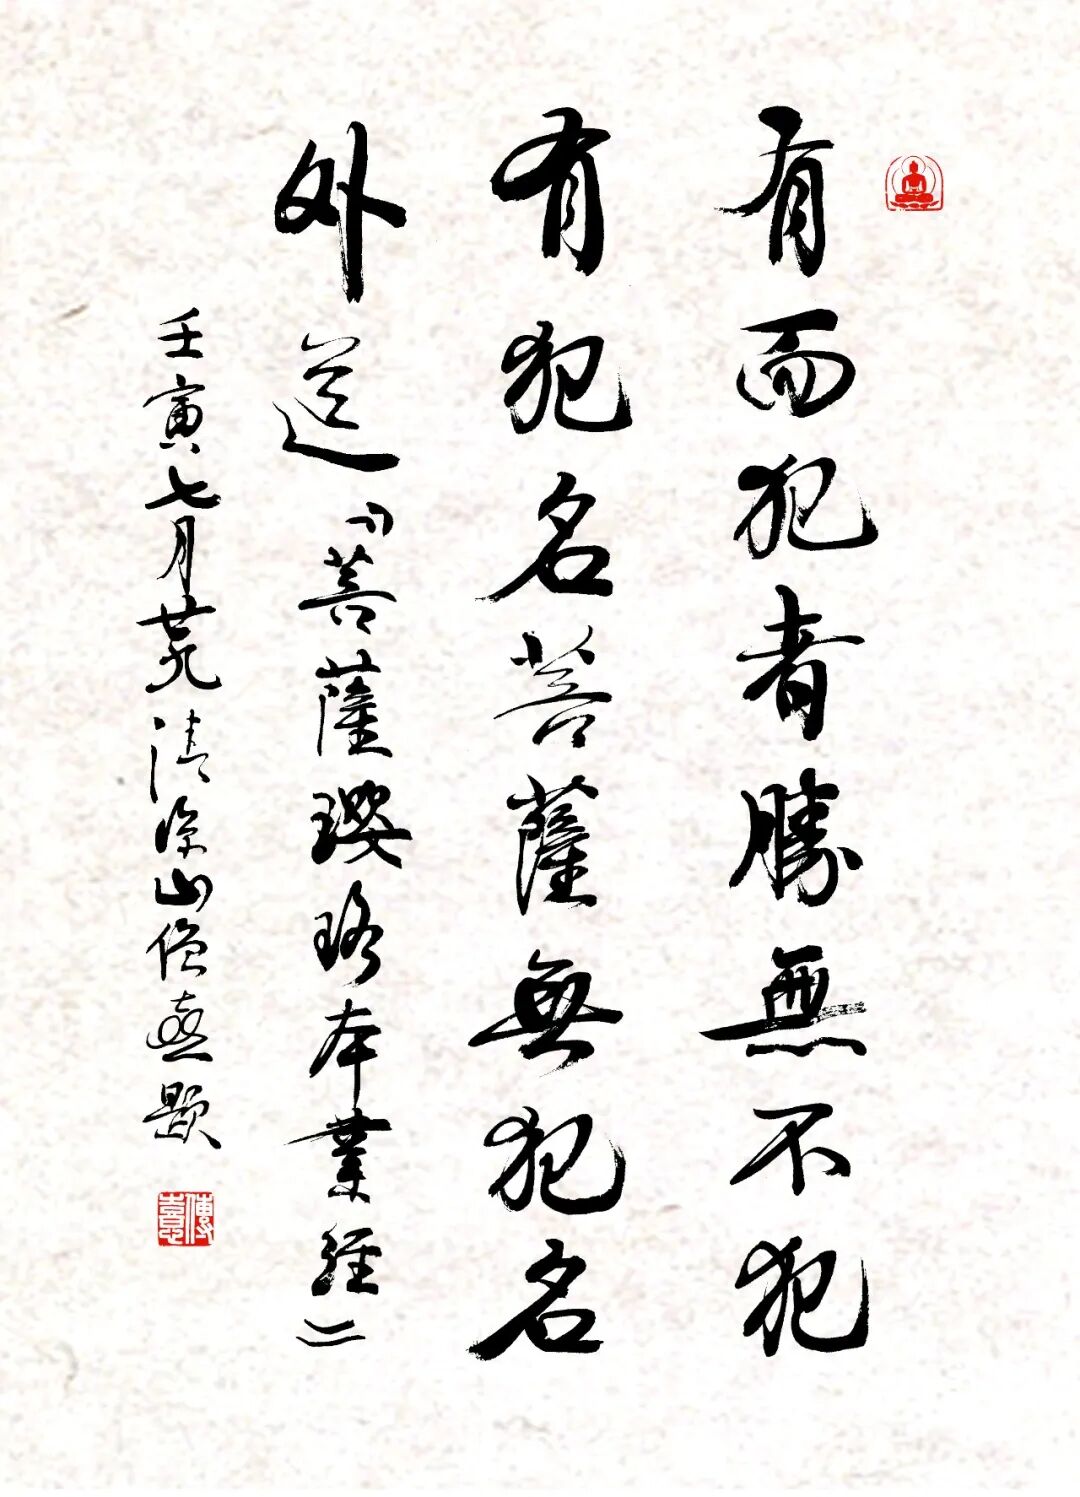 有而犯者勝無不犯
有犯名菩薩無犯名
外道《菩薩瓔珞本業經》
壬寅七月廿九清涼山僧憙題
傳憙